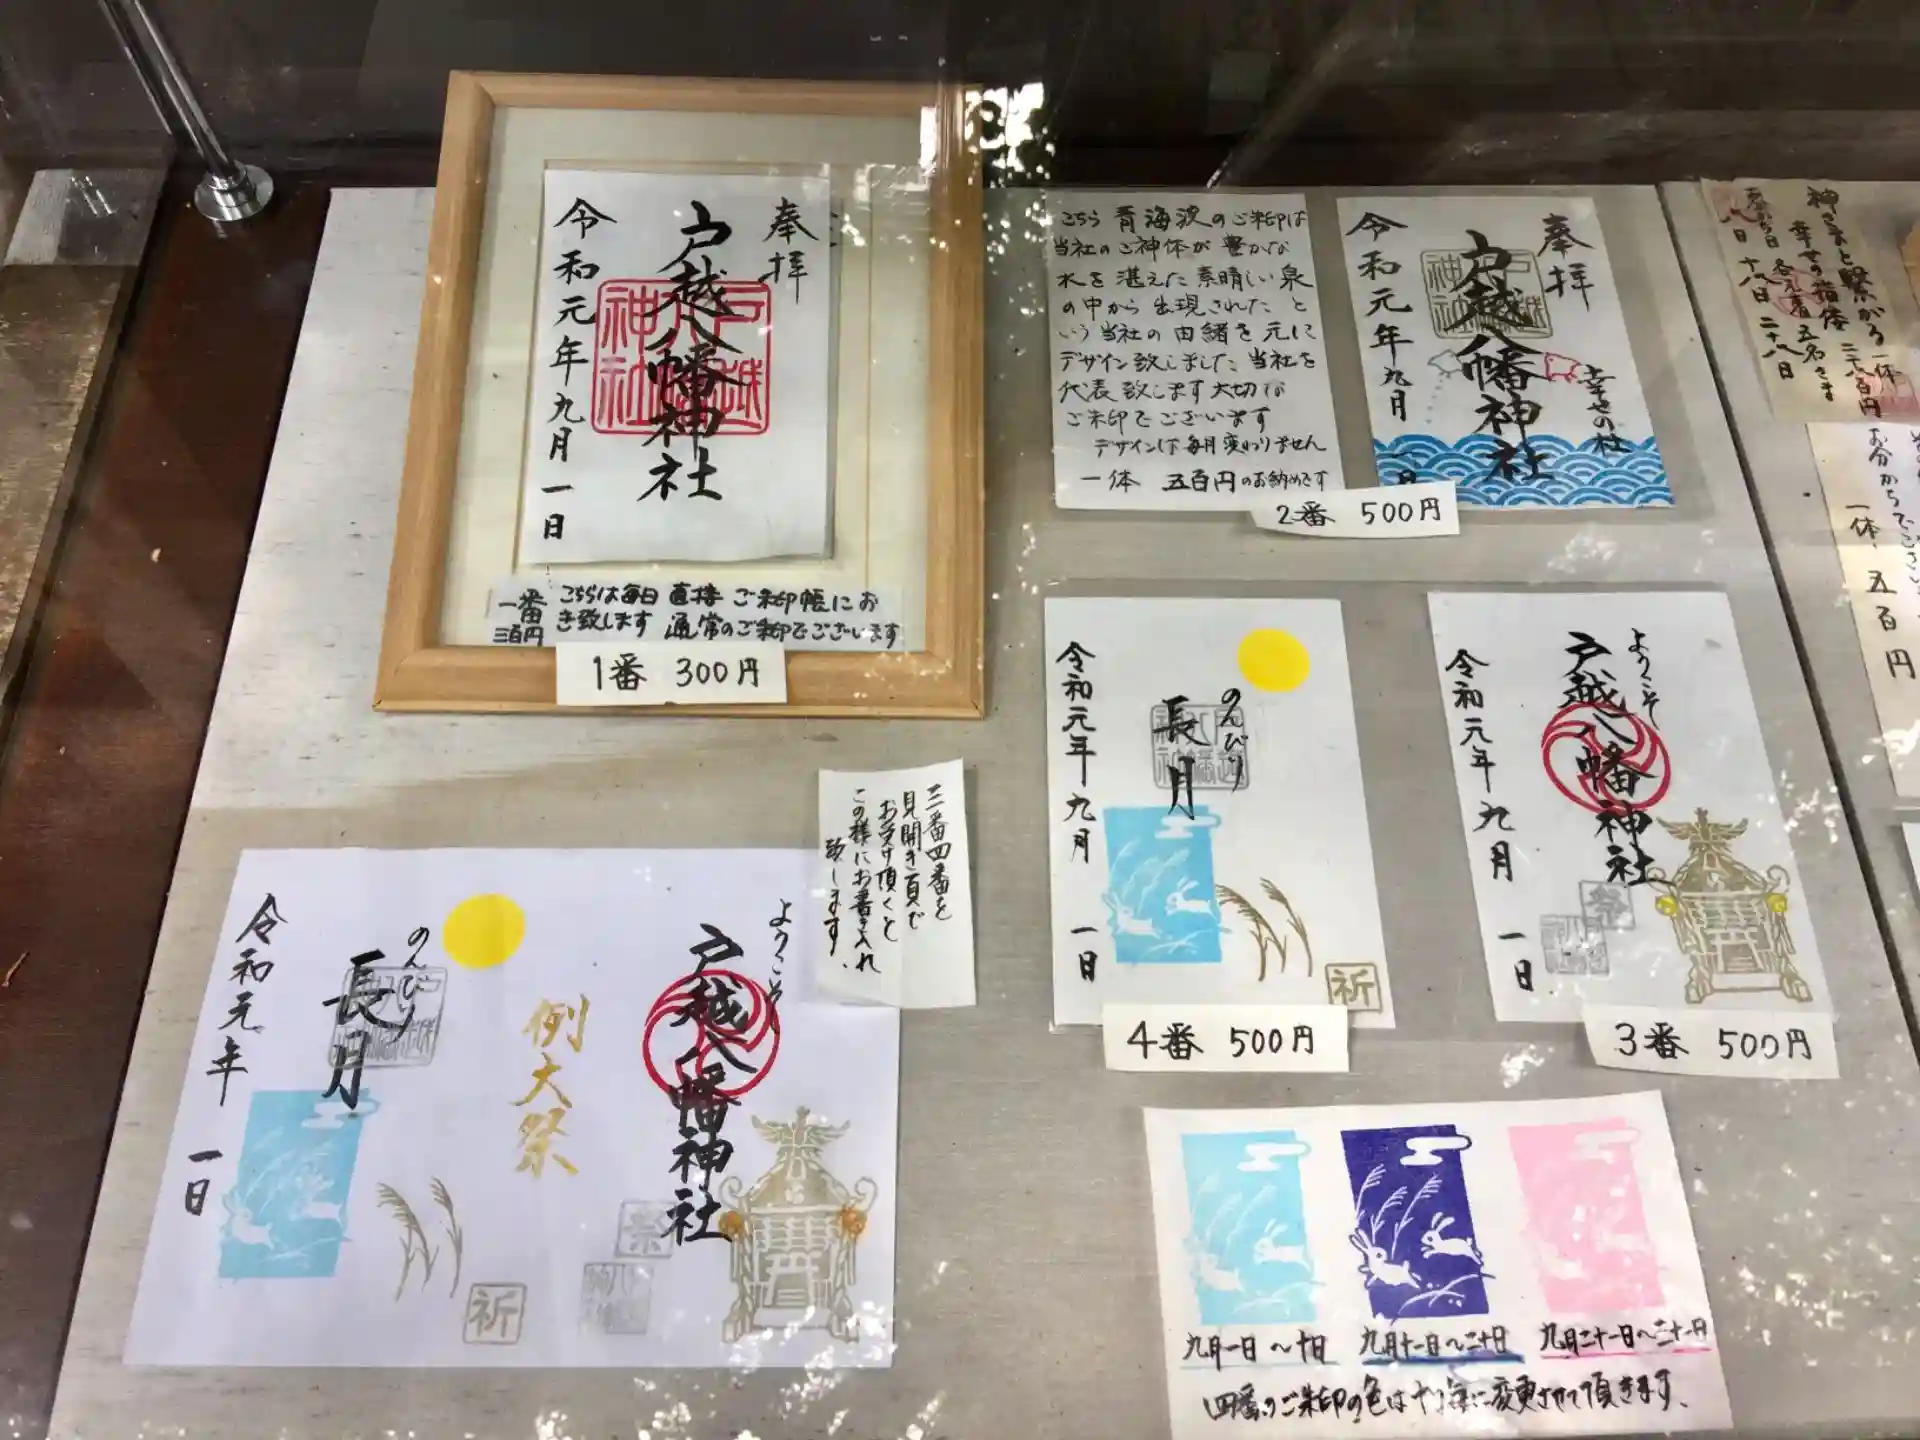 奉拝
戸越八幡神社
令和元年九月一日
一番
三百円
こちらは毎日 直接 ご朱印帳にお
き致します 通常のご朱印でございます
1番 300円
こちら 青海波のご朱印は
当社のご神体が 豊かな
水を 湛えた 素晴しい 泉
の中から 出現された と
いう当社の 由緒を 元に
デザイン致しました 当社を
代表致します 大切な
ご朱印でございます
デザインは毎月変わりません
一体 五百円のお納めです
奉拝
戸越八幡神社
幸せの杜
令和元年九月 一日
2番 500円
神さまと繋がる 一体
幸せの指倭 二千八百円
各先着五名さま
十八日 二十八日
お分かちでござい
一体、五百円
のんびり
長月
令和元年九月 一日
祈
4番 500円
ようこそ
戸越八幡神社
令和元年 九月 一日
祭
3番 500円
三番四番を
見開き頁で
お受け頂くと
この様にお書き入れ
致します、
ようこそ
戸越八幡神社
例大祭
のんびり
長月
令和元年 一日
祭
祈
九月一日〜十日
九月十一日〜二十日
九月二十一日〜三十一日
四番のご朱印の色は十日毎に変更させて頂きます、